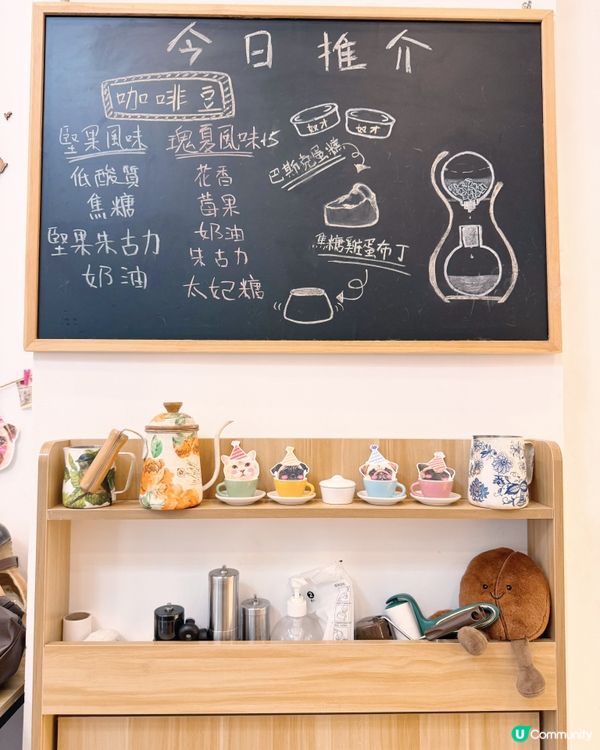 今日推介
咖啡豆
堅果風味
低酸質
焦糖
堅果朱古力
奶油
瑰夏風味+5
花香
莓果
奶油
朱古力
太妃糖
奴才
奴才
巴斯克蛋糕
焦糖雞蛋布丁
U Community